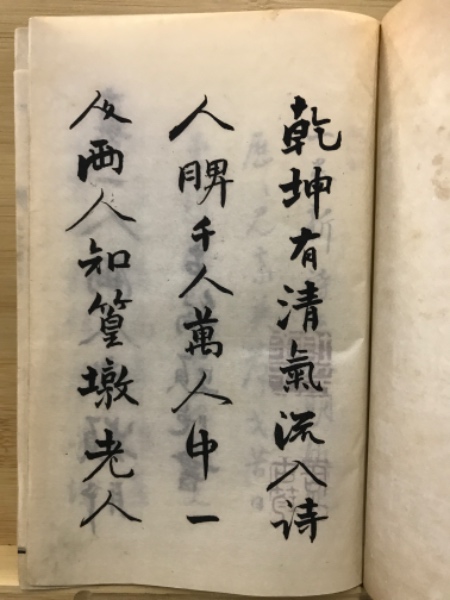 乾坤有清氣流入詩
人脾千人萬人中一
人两人知篁墩老人